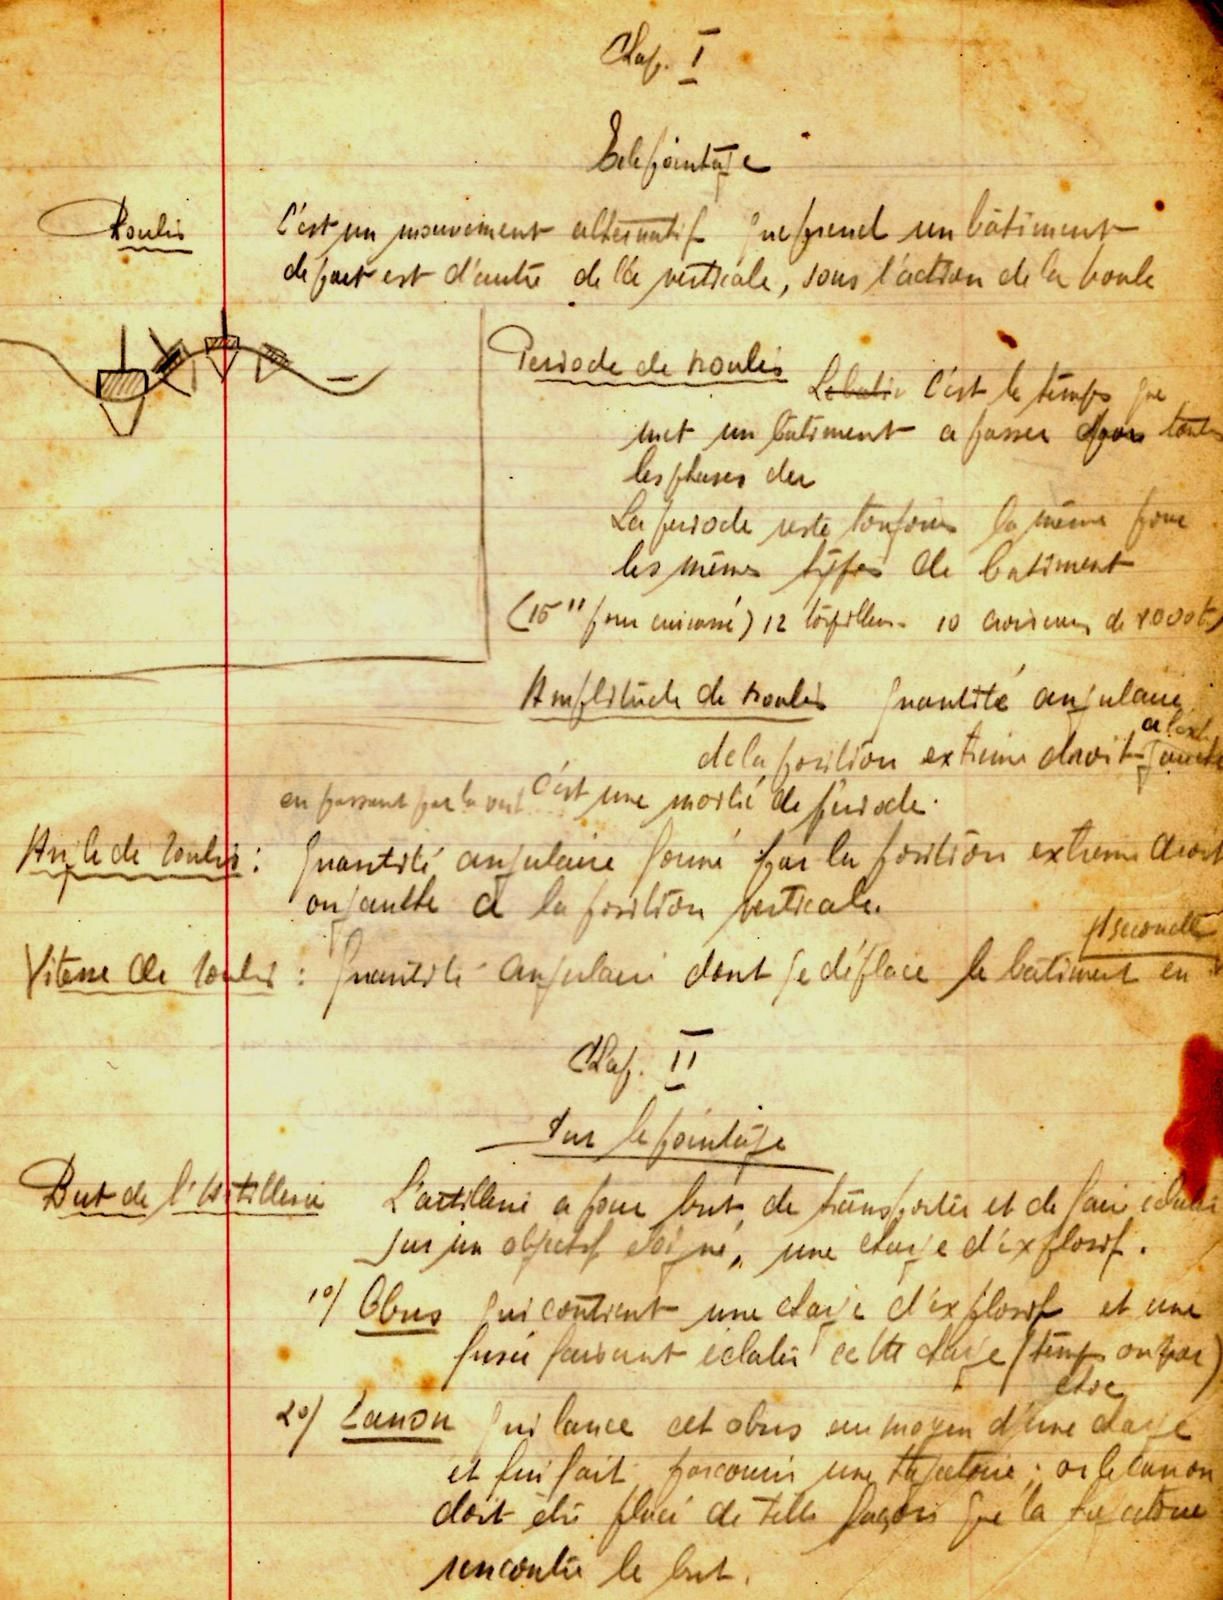 Chap. I
Telepointage
Roulis
C'est un mouvement alternatif que prend un bâtiment
de part est d'autre de la verticale, sous l'action de la houle
Periode de roulis
C'est le temps que
met un bâtiment a passer par toutes
les phases du
La periode reste toujours la même pour
les mêmes types de batiment
(15" pour cuirassé) 12 torpilleur. 10 croiseurs de 8000 t)
Amplitude de roulis quantité angulaire
de la position extreme droit gauche
en passant par la vert c'est une moitié de période.
Angle de roulis : quantité angulaire formé par la position extreme droit
ou gauche à la position verticale.
Vitesse de roulis : quantité angulaire dont se déplace le bâtiment en 1
seconde
Chap. II
Sur le pointage
But de l'Artillerie
L'artillerie a pour but, de transporter et de faire éclater
sur un objectif éloigné, une charge d'explosif.
1º/ Obus qui contient une charge d'explosif et une
fusée faisant éclater cette charge (temps ou per)
2º/ Canon qui lance cet obus au moyen d'une charge
et lui fait parcourir une trajectoire ; or le canon
doit être placé de telle façon que la trajectoire
rencontre le but.